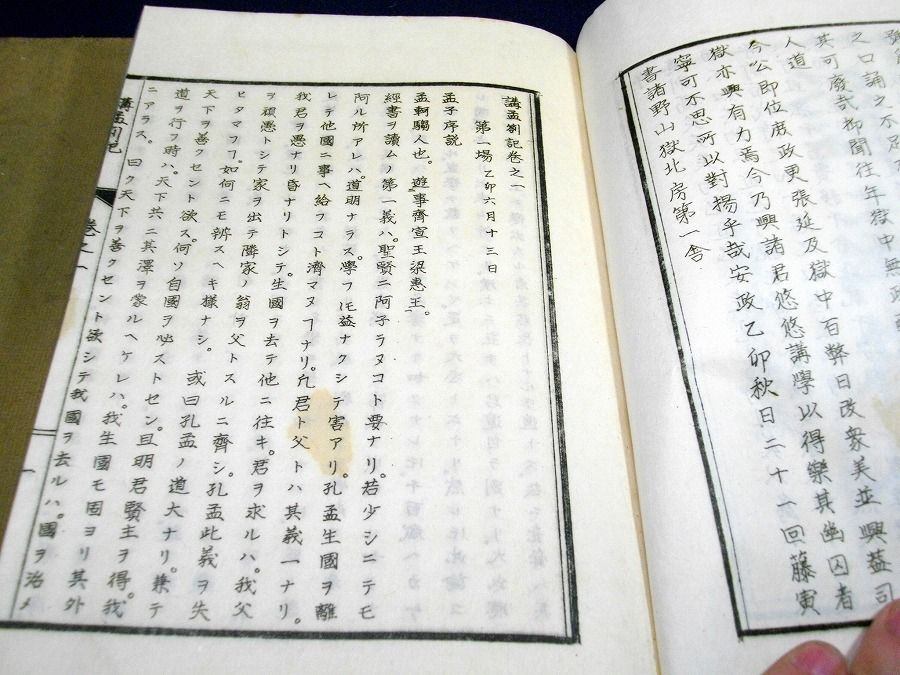 之口誦之不
其可廢哉抑聞往年獄中無政
人道
今公即位庶政更張延及獄中百弊日改衆美並興益司
獄亦與有力焉今乃與諸君悠悠講學以得樂其幽囚者
寧可不思所以對揚乎哉安政乙卯秋日二十一回藤寅
書諸野山獄北房第一舍
講孟劄記卷之一
第一場 乙卯六月十三日
孟子序説
孟軻騶人也。遊事齊宣王梁惠王。
經書ヲ讀ムノ第一義ハ。聖賢ニ阿子ラヌコト要ナリ。若少シニテモ
阿ル所アレハ。道明ナラス。學フ𪜈益ナクシテ害アリ。孔孟生國ヲ離
レテ他國ニ事ヘ給フコト濟マヌヿナリ。凡君ト父トハ其義一ナリ。
我君ヲ愚ナリ昏ナリトシテ。生國ヲ去テ他ニ往キ。君ヲ求ルハ。我父
ヲ頑愚トシテ家ヲ出テ隣家ノ翁ヲ父トスルニ齊シ。孔孟此義ヲ失
ヒタマフヿ。如何ニモ辨スヘキ樣ナシ。或曰孔孟ノ道大ナリ。兼テ
天下ヲ善クセント欲ス。何ソ自國ヲ必ストセン。且明君賢主ヲ得。我
道ヲ行フ時ハ。天下共ニ其澤ヲ蒙ルヘケレハ。我生國モ固ヨリ其外
ニアラス。曰ク天下ヲ善クセント欲シテ我國ヲ去ルハ。國ヲ治メ
講孟劄記
卷之一
一